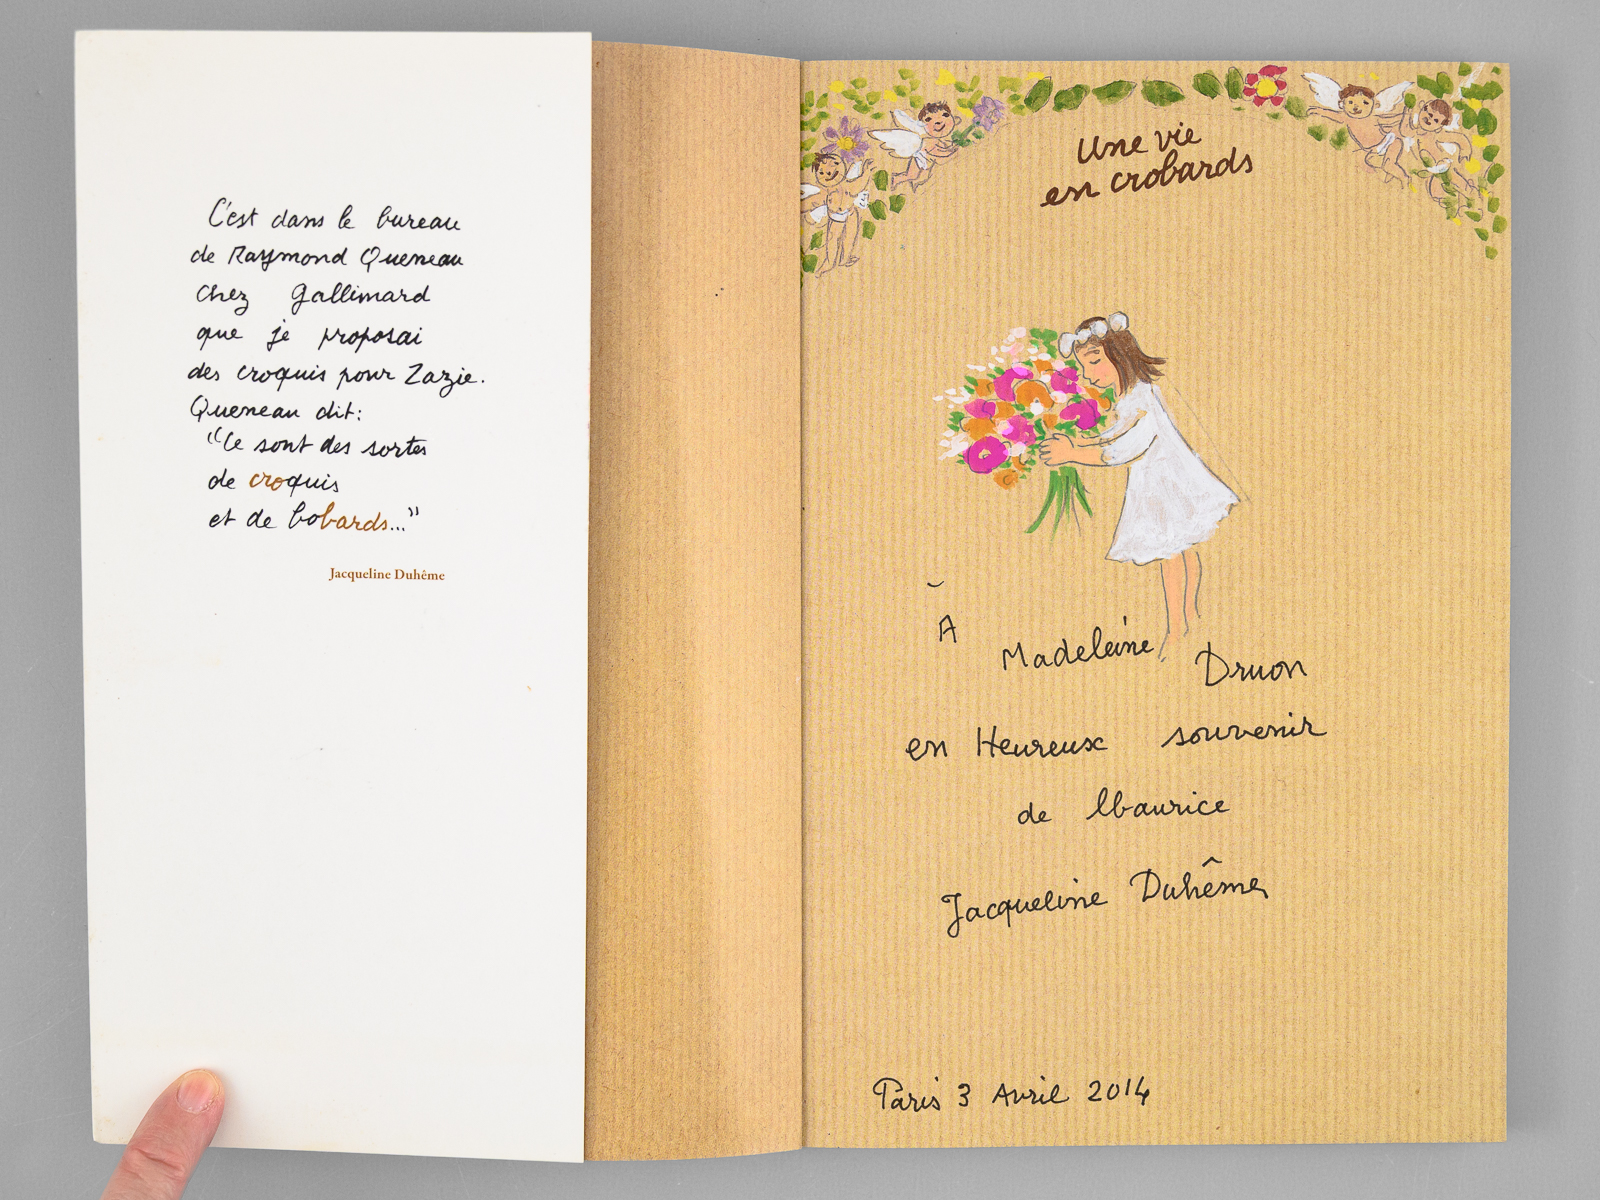 C'est dans le bureau
de Raymond Queneau
chez Gallimard
que je proposai
des croquis pour Zazie.
Queneau dit:
"Ce sont des sortes
de croquis
et de bobards..."
Jacqueline Duhême
Une vie
en crobards
A Madeleine Druon
en Heureux souvenir
de Maurice
Jacqueline Duhême
Paris 3 Avril 2014